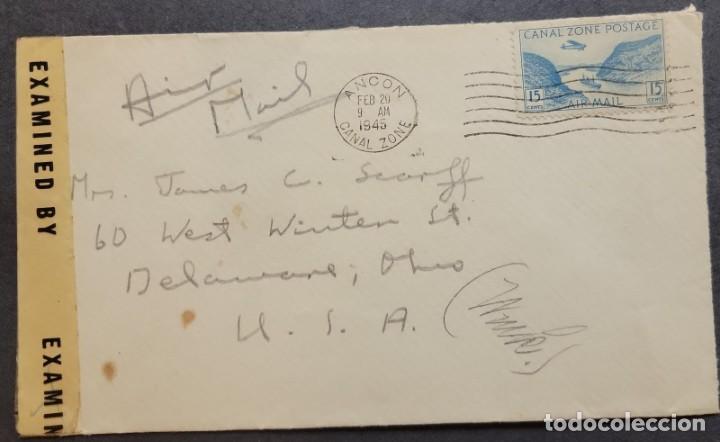 EXAMINED BY
EXAMIN
Air
Mail
ANCON
FEB 20
9 AM
1945
CANAL ZONE
CANAL ZONE POSTAGE
15
CENTS
AIR MAIL
15
CENTS
Mrs. James C. Scorff
60 West Winter St.
Delaware, Ohio
U. S. A.
todocoleccion